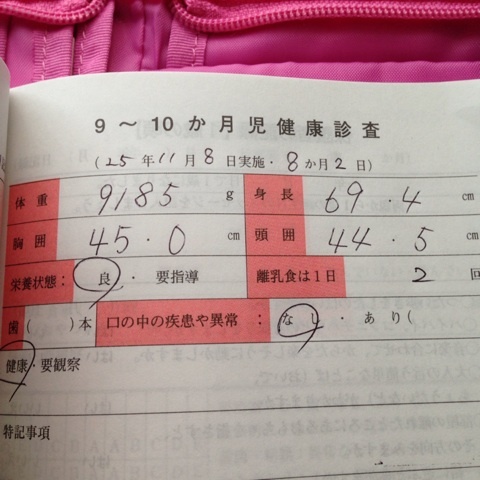 9～10か月児健康診査
(25年11月8日実施・8か月2日)
体重 9185 g 身長 69.4 cm
胸囲 45.0 cm 頭囲 44.5 cm
栄養状態： 良 ・ 要指導 離乳食は1日 2 回
歯( )本 口の中の疾患や異常 ： なし ・ あり(
健康・要観察
特記事項